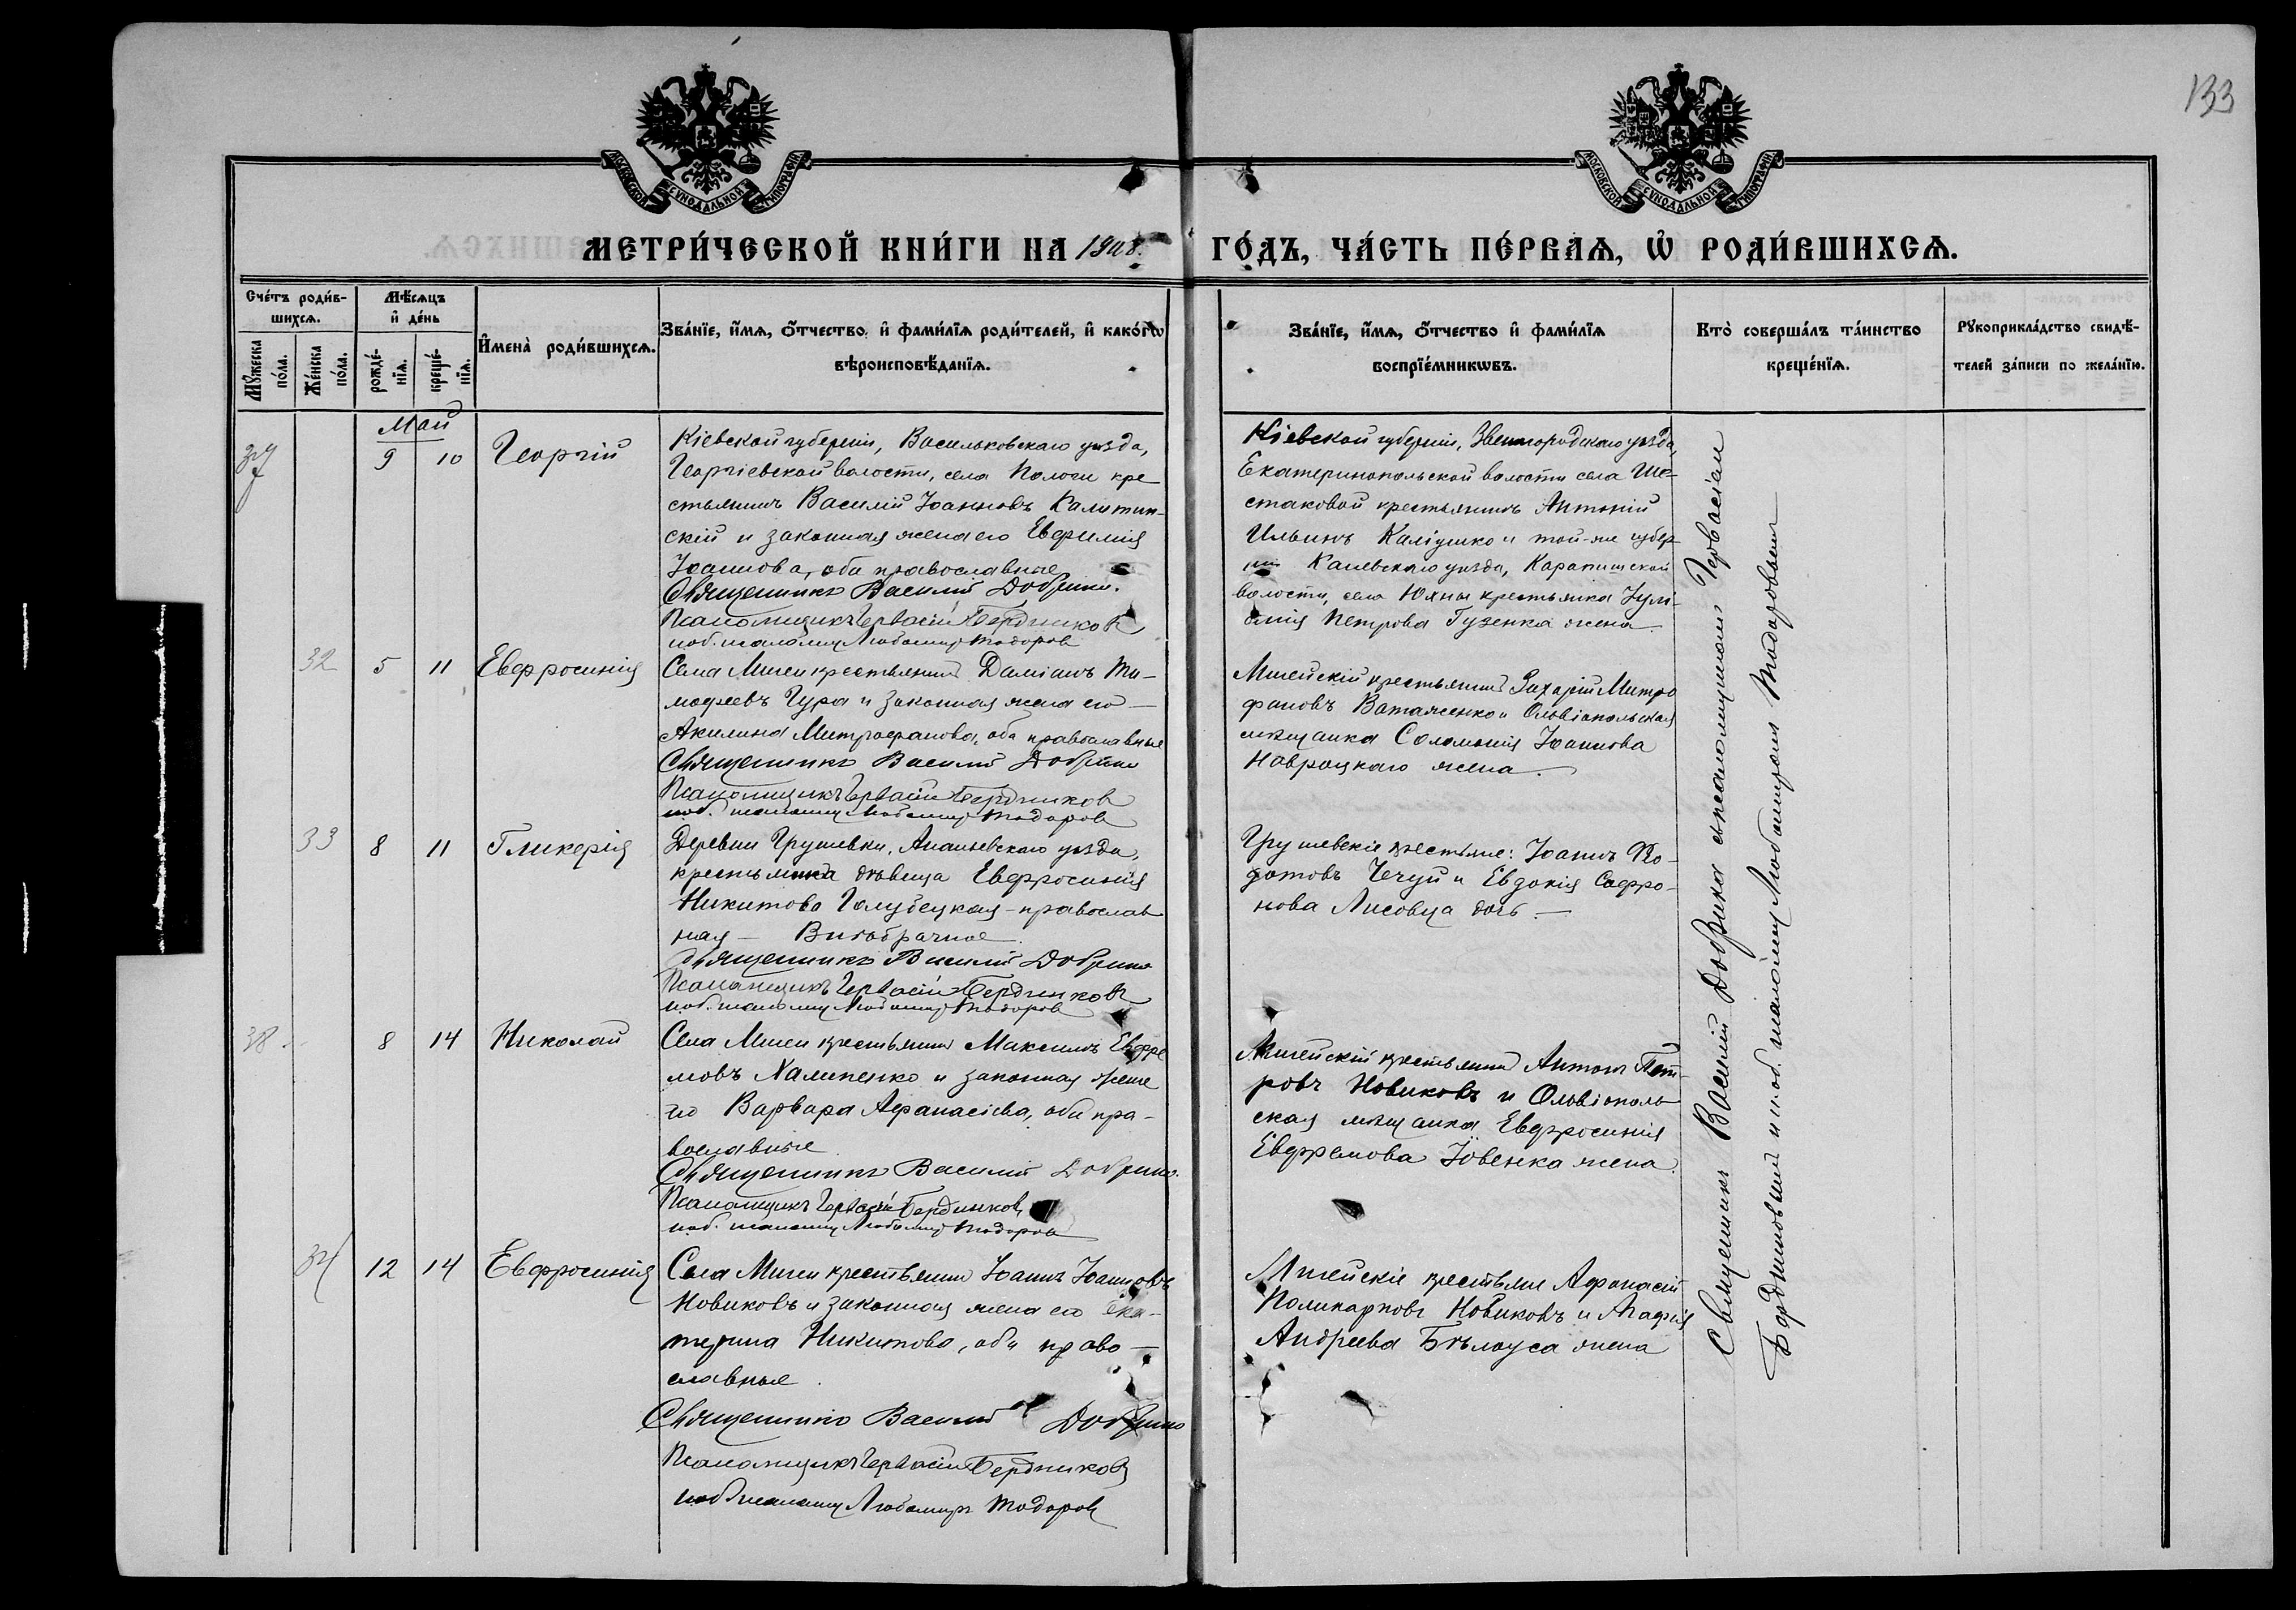 133
МОСКОВСКОЙ СУНОДАЛЬНОЙ ТИПОГРАФІИ
МОСКОВСКОЙ СУНОДАЛЬНОЙ ТИПОГРАФІИ
МЕТРИ́ЧЕСКОЙ КНИ́ГИ НА 1908 ГО́ДЪ, ЧА́СТЬ ПЕ́РВАѦ, Ѽ РОДИ́ВШИХСѦ.
Сче́тъ роди́в-
шихсѧ.
Мꙋ́жеска по́ла.
Же́нска по́ла.
Мѣ́сѧцъ
и҆ де́нь
рожде́-
нїѧ.
креще́-
нїѧ.
И҆мена̀ роди́вшихсѧ.
Зва́нїе, и҆́мѧ, ѻ҆́тчество и҆ фами́лїѧ роди́телей, и҆ како́гѡ
вѣроисповѣ́данїѧ.
Зва́нїе, и҆́мѧ, ѻ҆́тчество и҆ фами́лїѧ
воспрїе́мникѡвъ.
Кто̀ соверша́лъ та́инство
креще́нїѧ.
Рꙋкоприкла́дство свидѣ́-
телей за́писи по жела́нїю.
Май
37 9 10 Георгій
Кіевской губерніи, Васильковскаго уѣзда,
Георгіевской волости, села Пологи кре
стьянинъ Василій Іоанновъ Калитин-
скій и законная жена его Евфимія
Іоаннова, оба православные
Священникъ Василій Добрика.
Псаломщикъ Гервасій Бердников
и об. псаломщ. Любомиръ Тодоров
Кіевской губерніи, Звенигородскаго уѣзда,
Екатеринопольской волости села Ше-
стаковой крестьянинъ Антоній
Ильинъ Каліушко и той-же губер
ніи Каневскаго уѣзда, Карапишской
волости, села Юхны крестьянка Іулі-
анія Петрова Гузенка жена.
32 5 11 Евфросинія
Села Мигеи крестьянинъ Даміанъ Ти-
мофеевъ Гура и законная жена его
Акилина Митрофанова, оба православные
Священникъ Василій Добрика
Псаломщикъ Гервасій Бердников
и об. псаломщ. Любомиръ Тодоров
Мигейскій крестьянинъ Захарій Митро
фановъ Ватаженко и Ольвіопольская
мѣщанка Соломонія Іоаннова
Навроцкаго жена.
33 8 11 Гликерія
Деревни Грушевки, Ананьевскаго уѣзда,
крестьянка дѣвица Евфросинія
Никитова Голубецкая - православ
ная — Внѣбрачное.
Священникъ Василій Добрика
Псаломщикъ Гервасій Бердников
и об. псаломщ. Любомиръ Тодоров
Грушевскіе крестьяне: Іоаннъ Ѳео-
дотовъ Чечуй и Евдокія Софро-
нова Лисовца дочь. —
38 8 14 Николай
Села Мигеи крестьянинъ Максимъ Евфре
мовъ Халипенко и законная жена
его Варвара Афанасіева, оба пра-
вославные
Священникъ Василій Добрика.
Псаломщикъ Гервасій Бердников
и об. псаломщ. Любомиръ Тодоров
Мигейскій крестьянинъ Антонъ Пет-
ровъ Новиковъ и Ольвіополь
ская мѣщанка Евфросинія
Евфремова Іовенка жена.
34 12 14 Евфросинія
Села Мигеи крестьянинъ Іоаннъ Іоанновъ
Новиковъ и законная жена его Ека-
терина Никитова, оба право-
славные.
Священникъ Василій Добрика
Псаломщикъ Гервасій Бердников
и об. псаломщ. Любомиръ Тодоров
Мигейскіе крестьяне Афанасій
Поликарповъ Новиковъ и Агафія
Андреева Бѣлоуса жена
Священникъ Василій Добрика съ псаломщикомъ Гервасіем
Бердниковым и и. об. псаломщ. Любомиромъ Тодоровым